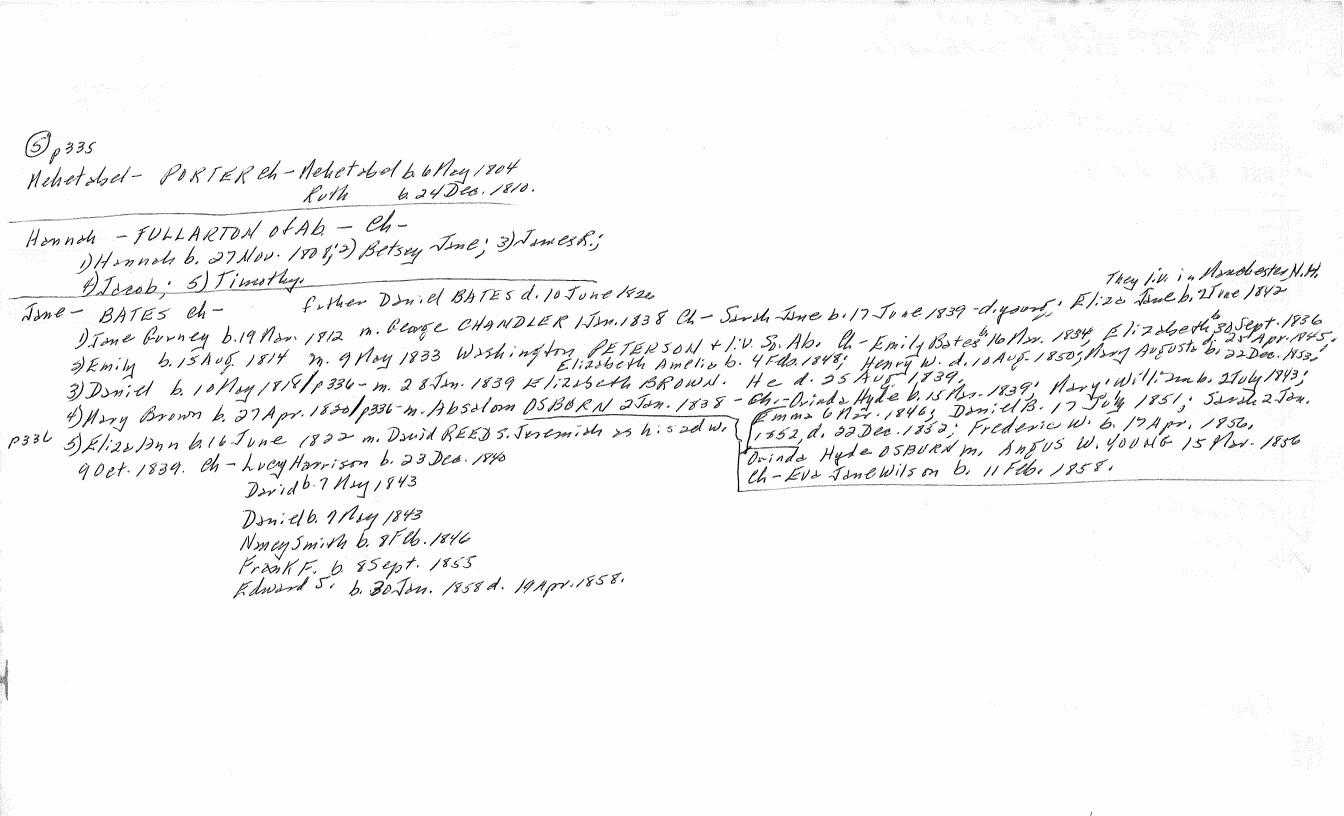 (5) p335
Mehetabel - PORTER ch - Mehetabel b. 6 May 1804
Ruth b. 24 Dec. 1810.
Hannah - FULLARTON of Ab - ch -
1) Hannah b. 27 Nov. 1808; 2) Betsey Jane; 3) James R.;
4) Jacob; 5) Timothy.
They liv. in Manchester N.H.
Jane - BATES ch - father Daniel BATES d. 10 June
1) Jane Gurney b. 19 Mar. 1812 m. George CHANDLER 1 Jan. 1838 Ch - Sarah Jane b. 17 June 1839 - d. young; Eliza Jane b. 7 June 1842
2) Emily b. 15 Aug. 1814 m. 9 May 1833 Washington PETERSON + liv. So. Ab. Ch - Emily Bates b 16 Mar. 1834, Elizabeth b 30 Sept. 1836 d. 25 Apr. 1845,
Elizabeth Amelia b. 4 Feb. 1848; Henry W. d. 10 Aug. 1850; Mary Augusta b. 22 Dec. 1853.
3) Daniel b. 10 May 1818/p336 - m. 28 Jan. 1839 Elizabeth BROWN. He d. 25 Aug 1839.
4) Mary Brown b. 27 Apr. 1820/p336 - m. Absalom OSBURN 2 Jan. 1838 - Ch. - Orinda Hyde b. 15 Mar. 1839; Mary William b. 2 July 1843;
Emma 6 Mar. 1846; Daniel B. 17 July 1851; Sarah 2 Jan.
1852, d. 22 Dec. 1852; Frederic W. b. 17 Apr. 1856.
p336 5) Eliza Ann b. 16 June 1822 m. David REED s. Jeremiah as his 2d w.
9 Oct. 1839. Ch - Lucy Harrison b. 23 Dec. 1840
Orinda Hyde OSBURN m. ANGUS W. YOUNG 15 Mar. 1856
Ch - Eva Jane Wilson b. 11 Feb. 1858.
David b. 7 May 1843
Daniel b. 7 May 1843
Nancy Smith b. 8 Feb. 1846
Frank F. b. 8 Sept. 1855
Edward S. b. 30 Jan. 1858 d. 19 Apr. 1858.